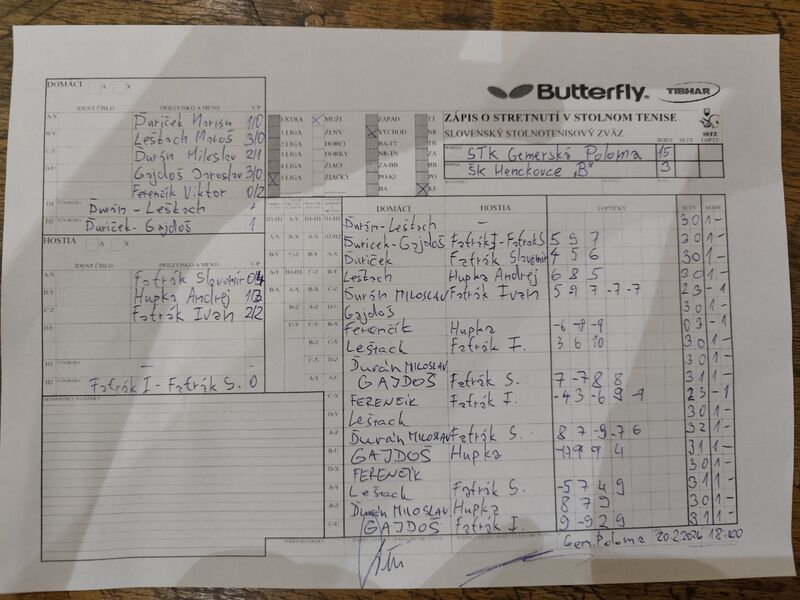 DOMÁCI A X
Butterfly TIBHAR
IDENT ČÍSLO PRIEZVISKO A MENO V/P
A-X Ďuriček Marián 1/0
B-Y Leštach Matúš 3/0
C-Z Durán Miloslav 2/1
D-U Gajdoš Jaroslav 3/0
Ferenčík Viktor 0/2
D1 Ďurán - Leštach 1
D2 Ďuriček - Gajdoš 1
EXTRA X MUŽI ZÁPAD TT
1 LIGA ŽENY X VÝCHOD NR
2 LIGA DORCI BA-TT TN
3 LIGA DORKY NR-TN ZA
4 LIGA ŽIACI ZA-BB
5 LIGA ŽIAČKY
BA X KE
ZÁPIS O STRETNUTÍ V STOLNOM TENISE
SLOVENSKÝ STOLNOTENISOVÝ ZVÄZ SSTZ
BODY SETY LOPTY
STK Gemerská Poloma 15
ŠK Henckovce „B“ 3
HOSTIA A X
IDENT ČÍSLO PRIEZVISKO A MENO V/P
Faťrák Slavomír 0/4
Hupka Andrej 1/3
Faťrák Ivan 2/2
H2 Faťrák I - Faťrák S. 0
DOMÁCI HOSTIA LOPTIČKY SETY BODY
Durán - Leštach - 3 0 1 -
Ďuriček - Gajdoš Faťrák I - Faťrák S 5 9 7 3 0 1 -
Ďuriček Faťrák Slavomír 4 5 6 3 0 1 -
Leštach Hupka Andrej 6 8 5 3 0 1 -
Durán MILOSLAV Faťrák Ivan 5 9 7 -7 -7 2 3 - 1
Gajdoš 3 0 1 -
Ferenčík Hupka -6 -8 -9 0 3 - 1
Leštach Faťrák I. 3 6 10 3 0 1 -
Ďurán MILOSLAV 3 0 1 -
GAJDOŠ Faťrák S. 7 -7 8 8 3 1 1 -
FERENČÍK Faťrák I. -4 3 -6 9 -9 2 3 - 1
Leštach 3 0 1 -
Ďurán MILOSLAV Faťrák S. 8 7 -9 -7 6 3 2 1 -
GAJDOŠ Hupka 9 9 4 3 1 1 -
FERENČÍK 3 0 1 -
Leštach Faťrák S. -5 7 4 9 3 1 1 -
Ďurán MILOSLAV Hupka 8 7 9 3 0 1 -
GAJDOŠ Faťrák I. 9 -9 2 9 3 1 1 -
Gem. Poloma 20.2.2026 18:00